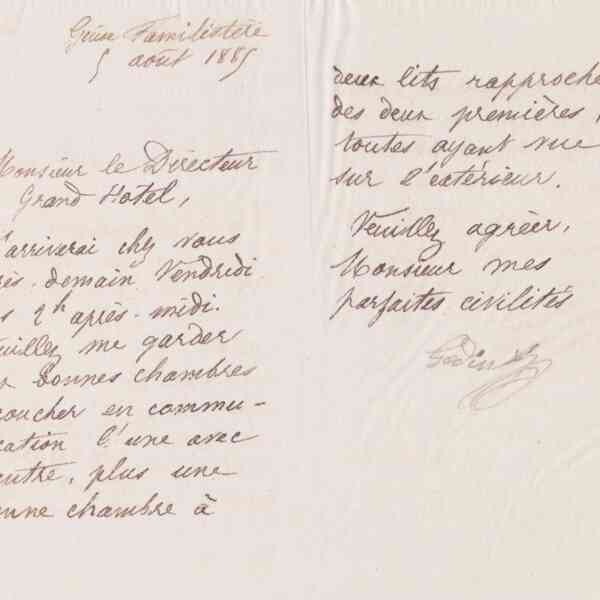 Guise Familistère
5 août 1885
Monsieur le Directeur
Grand Hotel,
arriverai chez vous
demain Vendredi
2h après-midi.
me garder
bonnes chambres
coucher en commu-
cation l'une avec
autre, plus une
bonne chambre à
deux lits rapproche
des deux premières,
toutes ayant vue
sur l'extérieur.
Veuillez agréer,
Monsieur mes
parfaites civilités
Godin